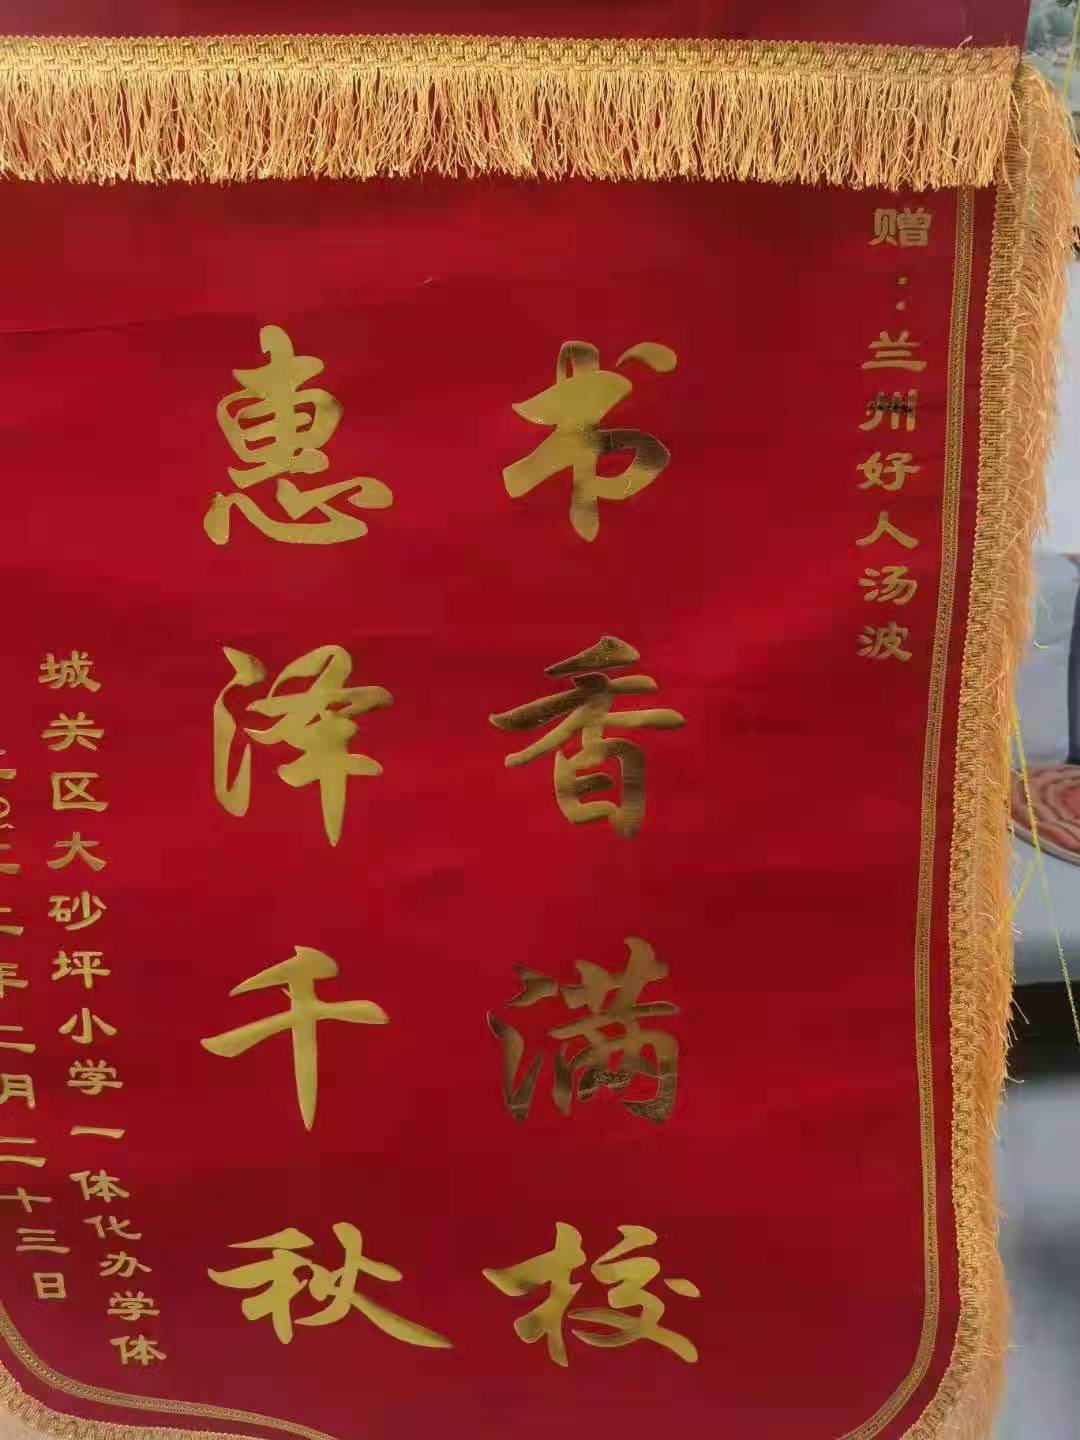 赠:兰州好人汤波
书香满校
惠泽千秋
城关区大砂坪小学一体化办学体
二〇二二年二月二十三日